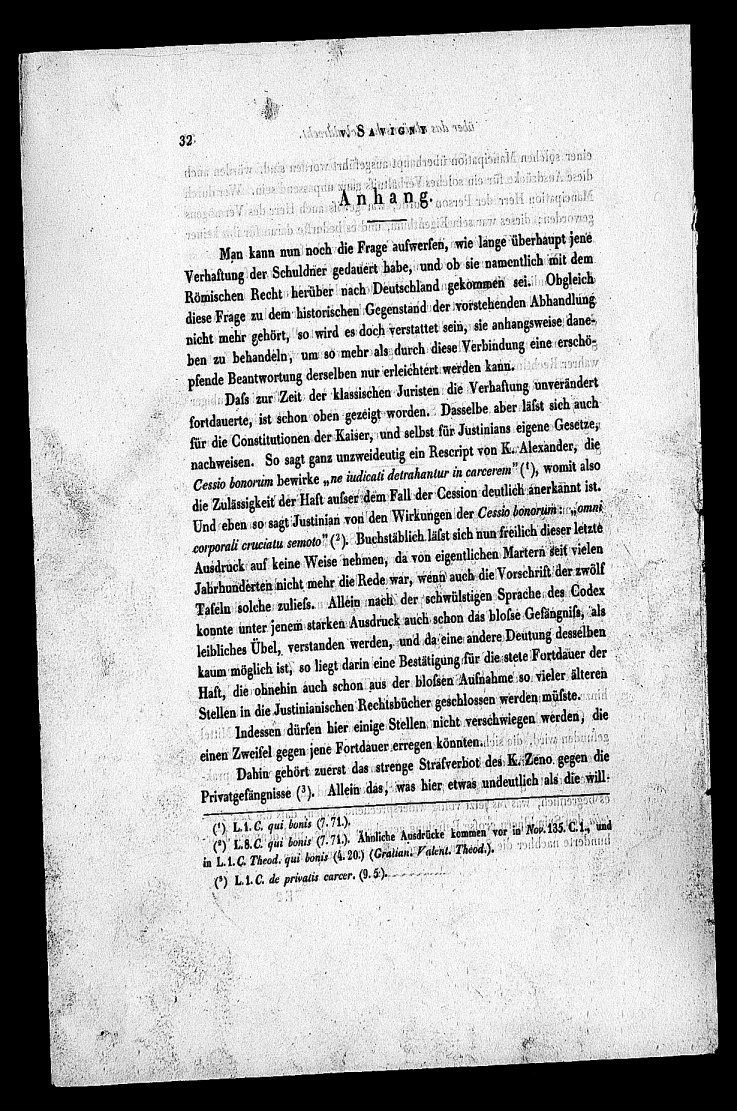 32
v. SAVIGNY
Anhang.
Man kann nun noch die Frage aufwerfen, wie lange überhaupt jene
Verhaftung der Schuldner gedauert habe, und ob sie namentlich mit dem
Römischen Recht herüber nach Deutschland gekommen sei. Obgleich
diese Frage zu dem historischen Gegenstand der vorstehenden Abhandlung
nicht mehr gehört, so wird es doch verstattet sein, sie anhangsweise dane-
ben zu behandeln, um so mehr als durch diese Verbindung eine erschö-
pfende Beantwortung derselben nur erleichtert werden kann.
Daſs zur Zeit der klassischen Juristen die Verhaftung unverändert
fortdauerte, ist schon oben gezeigt worden. Dasselbe aber läſst sich auch
für die Constitutionen der Kaiser, und selbst für Justinians eigene Gesetze,
nachweisen. So sagt ganz unzweideutig ein Rescript von K. Alexander, die
Cessio bonorum bewirke „ne iudicati detrahantur in carcerem” (¹), womit also
die Zulässigkeit der Haft auſser dem Fall der Cession deutlich anerkannt ist.
Und eben so sagt Justinian von den Wirkungen der Cessio bonorum: „omni
corporali cruciatu semoto” (²). Buchstäblich läſst sich nun freilich dieser letzte
Ausdruck auf keine Weise nehmen, da von eigentlichen Martern seit vielen
Jahrhunderten nicht mehr die Rede war, wenn auch die Vorschrift der zwölf
Tafeln solche zulieſs. Allein nach der schwülstigen Sprache des Codex
konnte unter jenem starken Ausdruck auch schon das bloſse Gefängniſs, als
leibliches Übel, verstanden werden, und da eine andere Deutung desselben
kaum möglich ist, so liegt darin eine Bestätigung für die stete Fortdauer der
Haft, die ohnehin auch schon aus der bloſsen Aufnahme so vieler älteren
Stellen in die Justinianischen Rechtsbücher geschlossen werden müſste.
Indessen dürfen hier einige Stellen nicht verschwiegen werden, die
einen Zweifel gegen jene Fortdauer erregen könnten.
Dahin gehört zuerst das strenge Strafverbot des K. Zeno gegen die
Privatgefängnisse (³). Allein das, was hier etwas undeutlich als die will-
(¹) L.1. C. qui bonis (7.71.).
(²) L.8. C. qui bonis (7.71.). Ähnliche Ausdrücke kommen vor in Nov. 135. C.1., und
in L.1. C. Theod. qui bonis (4.20.) (Gratian. Valent. Theod.).
(³) L.1. C. de privatis carcer. (9.5.).